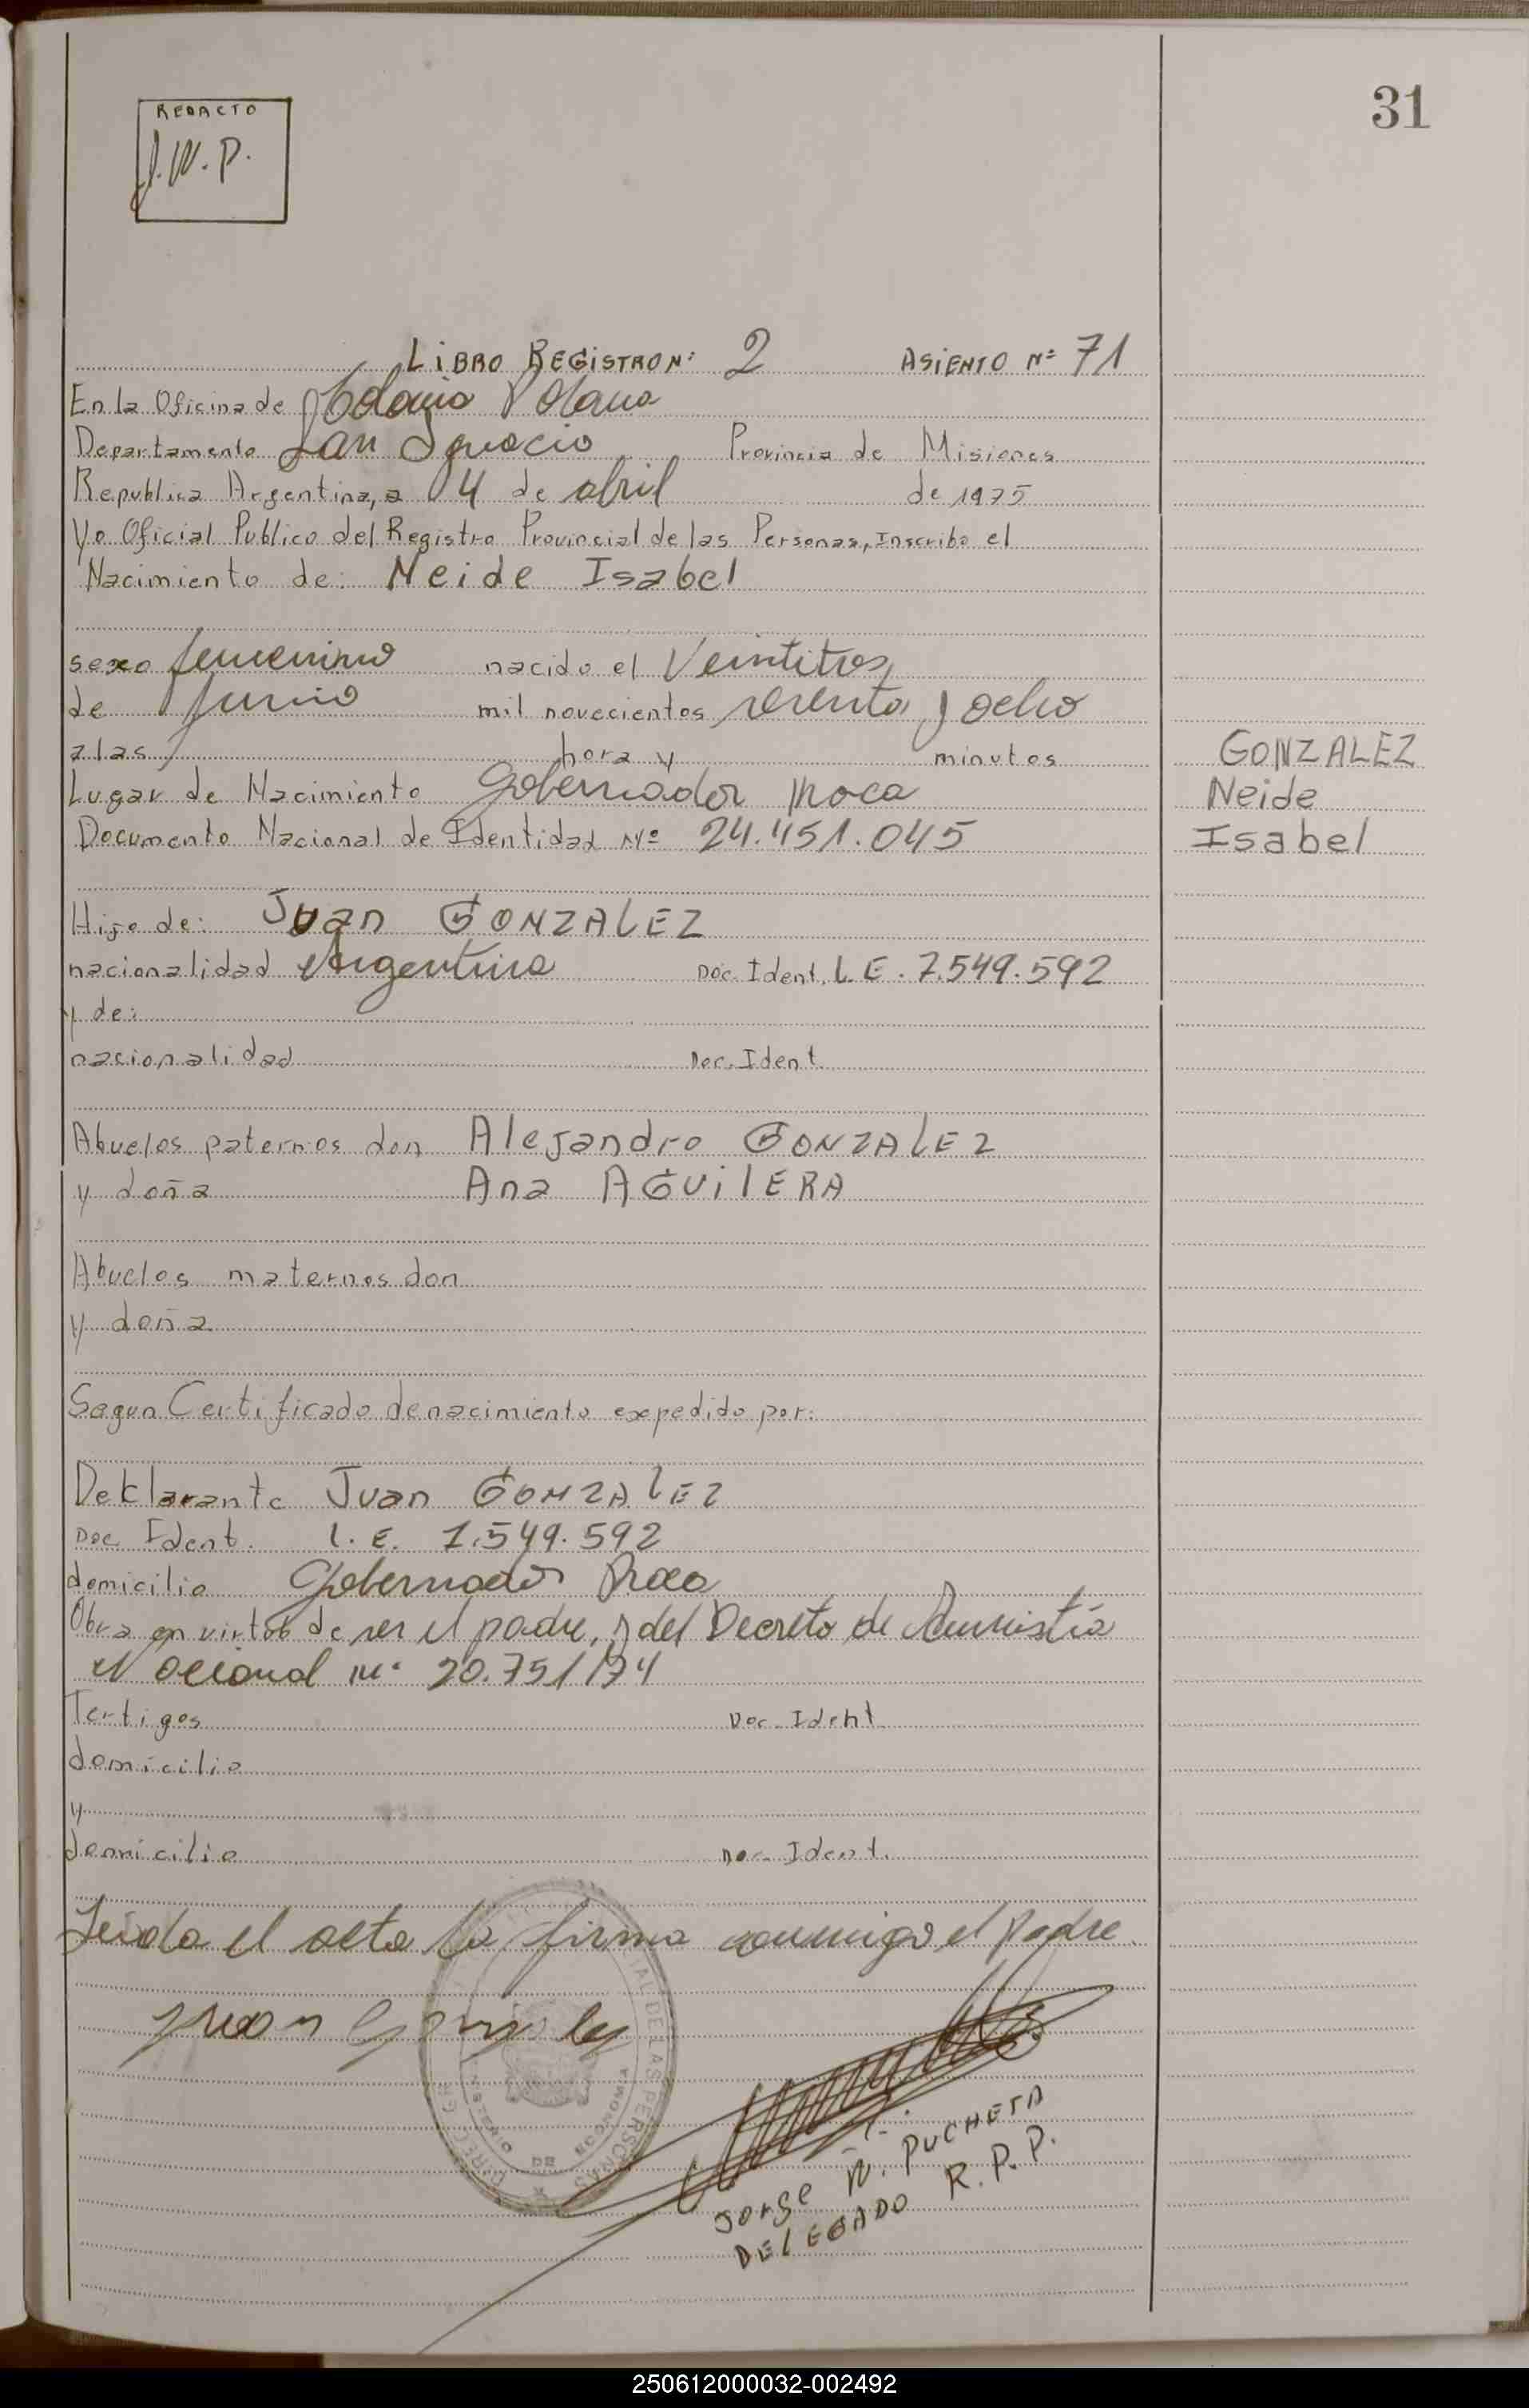 31
REDACTO
J.W.P.
LIBRO REGISTRO Nº: 2 ASIENTO Nº 71
En la Oficina de Colonia Polana
Departamento San Ignacio Provincia de Misiones
Republica Argentina, a 4 de abril de 1975
Yo Oficial Publico del Registro Provincial de las Personas, Inscribo el
Nacimiento de: Neide Isabel
sexo femenino nacido el Veintitres
de Junio mil novecientos sesenta y ocho
a las hora y minutos
Lugar de Nacimiento Gobernador Roca
Documento Nacional de Identidad Nº 24.451.045
GONZALEZ
Neide
Isabel
Hijo de: Juan GONZALEZ
nacionalidad Argentina Doc. Ident. L.E. 7.549.592
y de:
nacionalidad Doc. Ident
Abuelos paternos don Alejandro GONZALEZ
y doña Ana AGUILERA
Abuelos maternos don
y doña
Segun Certificado de nacimiento expedido por:
Declarante Juan GONZALEZ
Doc. Ident. L.E. 7.549.592
domicilio Gobernador Roca
Obra en virtud de ser el padre, y del Decreto de Amnistía
Nacional Nº 20.751/74
Tertigos Doc. Ident
domicilio
y
domicilio Doc. Ident.
Leida el acta la firma conmigo el padre.
Juan Gonzalez
DE LAS PERSONAS
DE ECONOMIA
Jorge W. PUCHETA
DELEGADO R.P.P.
250612000032-002492